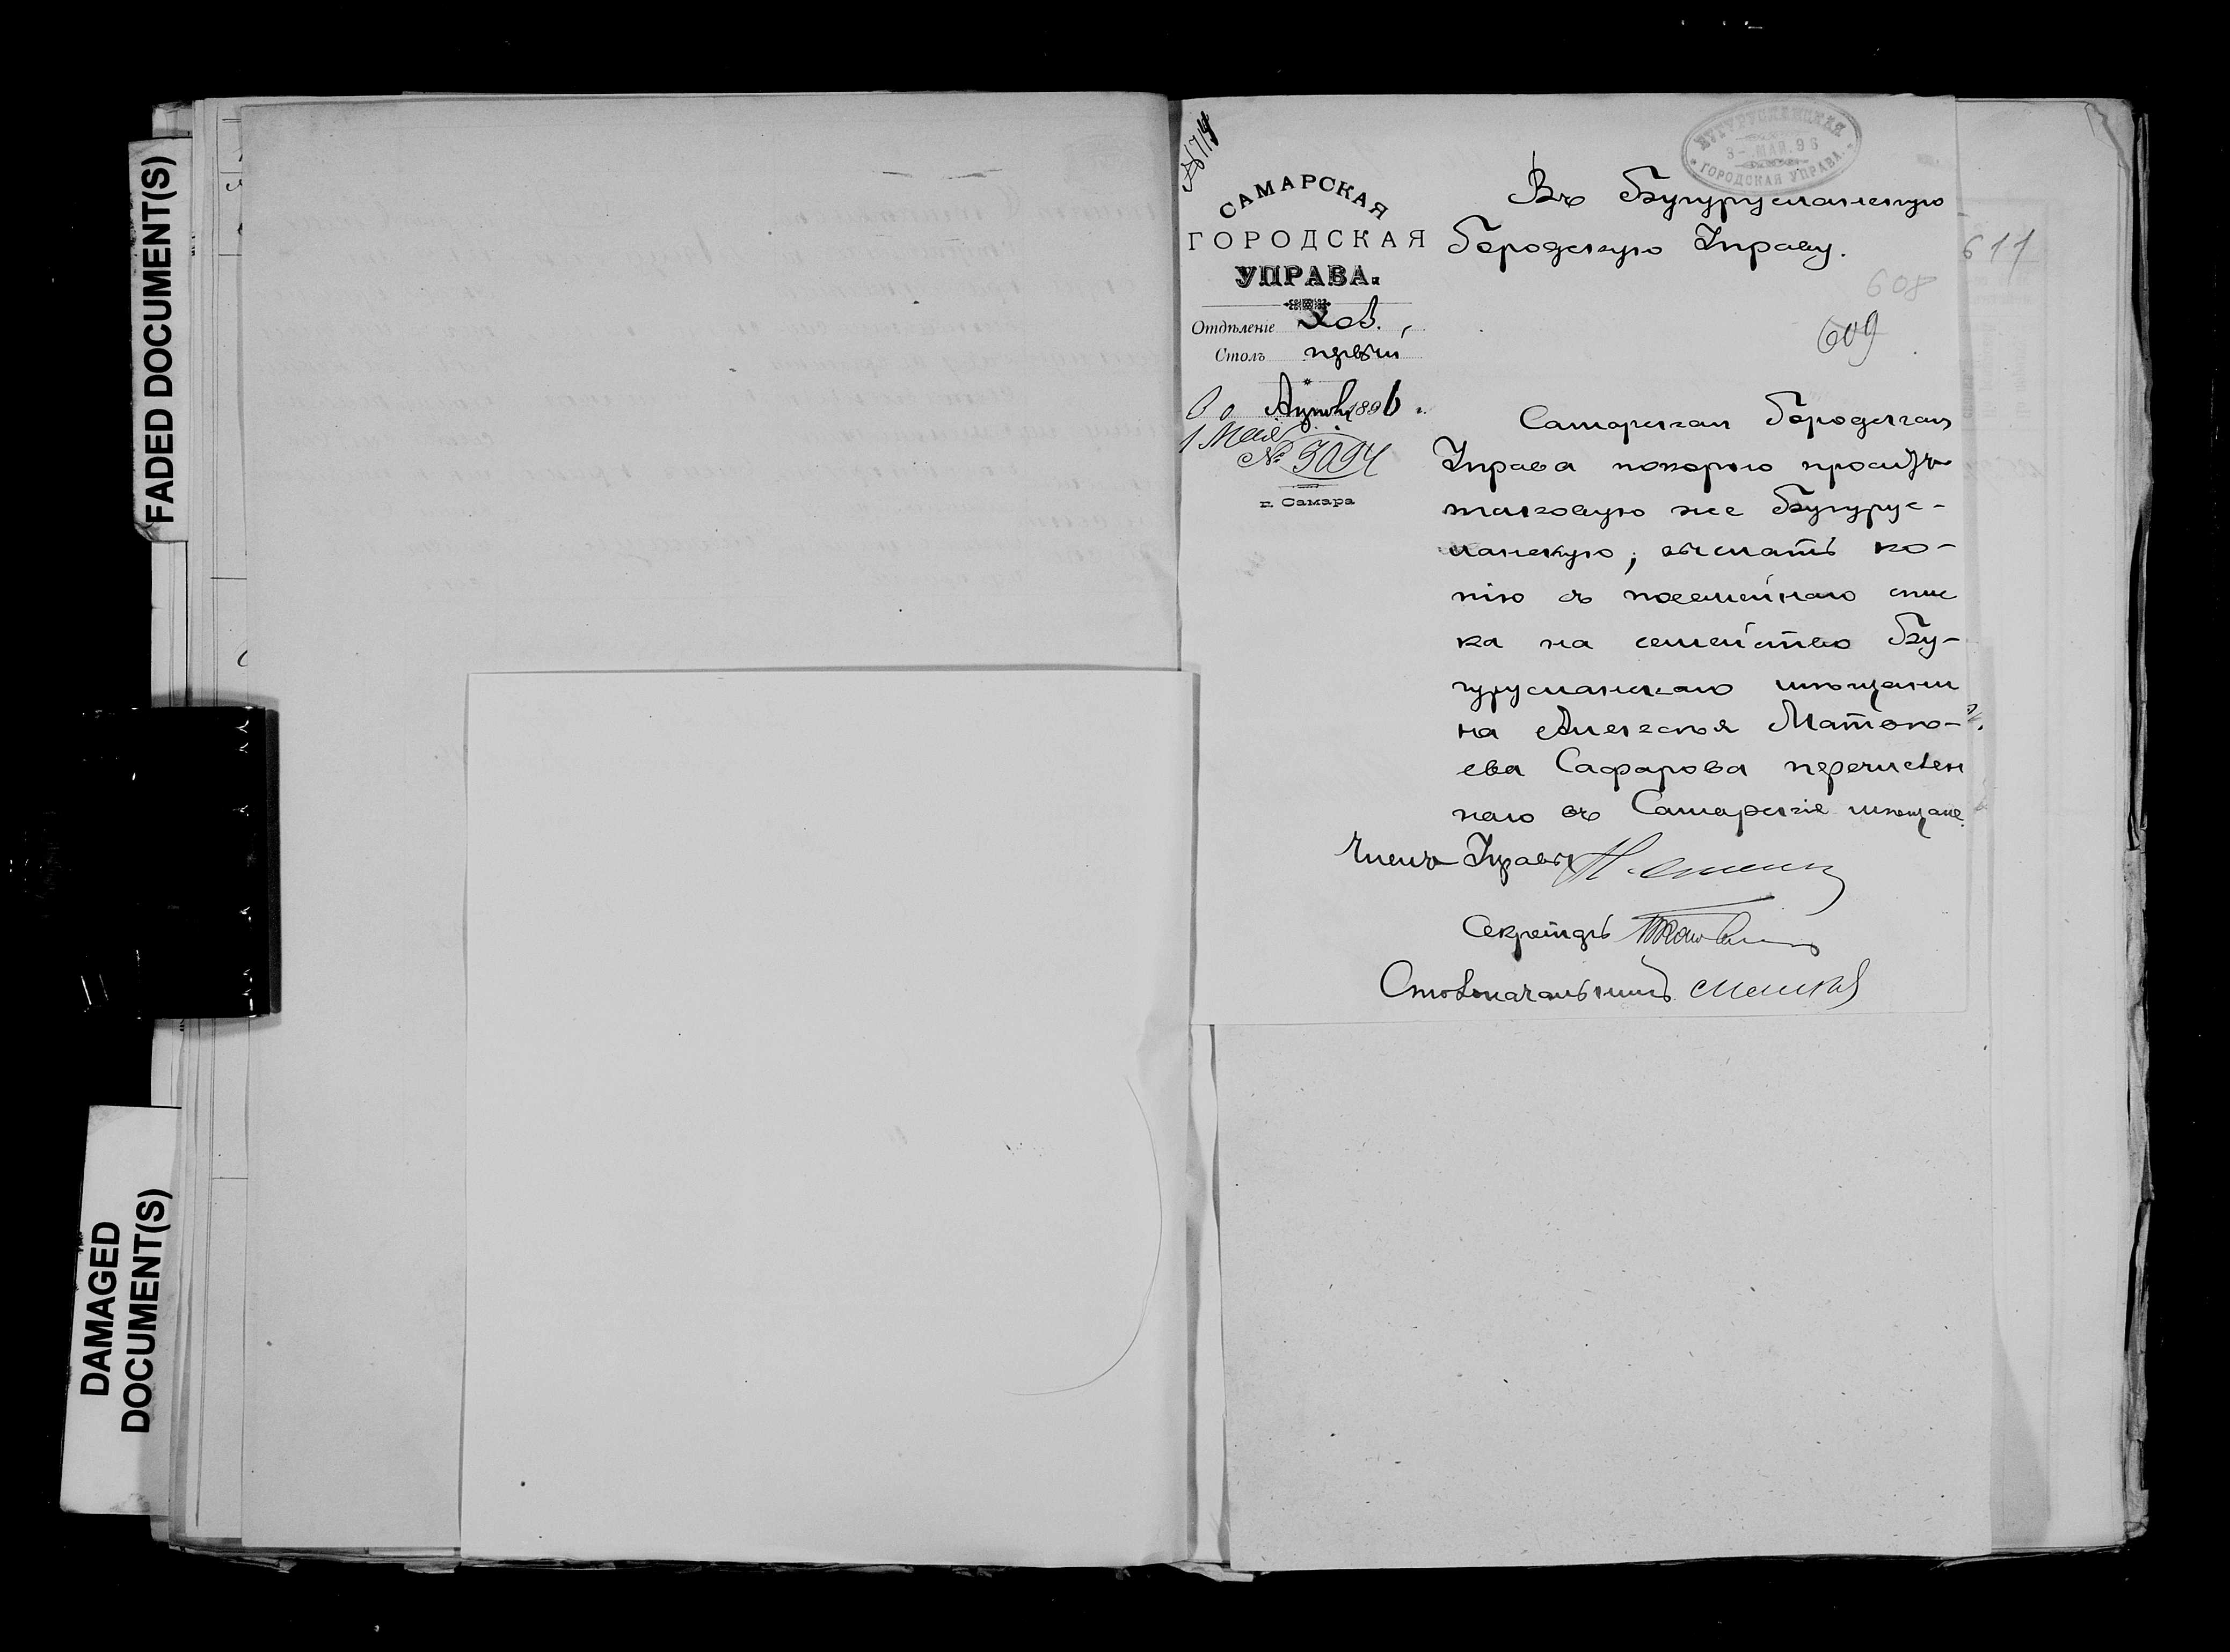 FADED DOCUMENT(S)
DAMAGED
DOCUMENT(S)
САМАРСКАЯ
ГОРОДСКАЯ
УПРАВА.
Отдѣленіе Хоз.
Столъ первый
1896 г.
1 Мая
№ 3094
г. Самара
БУГУРУСЛАНСКАЯ
3 - МАЯ. 96
ГОРОДСКАЯ УПРАВА.
Въ Бугурусланскую
Городскую Управу.
611
608
609
Самарская Городская
Управа покорно проситъ
таковую же Бугурус-
ланскую, выслать ко-
пію съ посемейнаго спис
ка на семейство Бу-
гурусланскаго мѣщани
на Алексѣя Матвѣ-
ева Сафарова перечислен
наго въ Самарскіе мѣщане.
Членъ Управы
Секретарь
Столоначальникъ